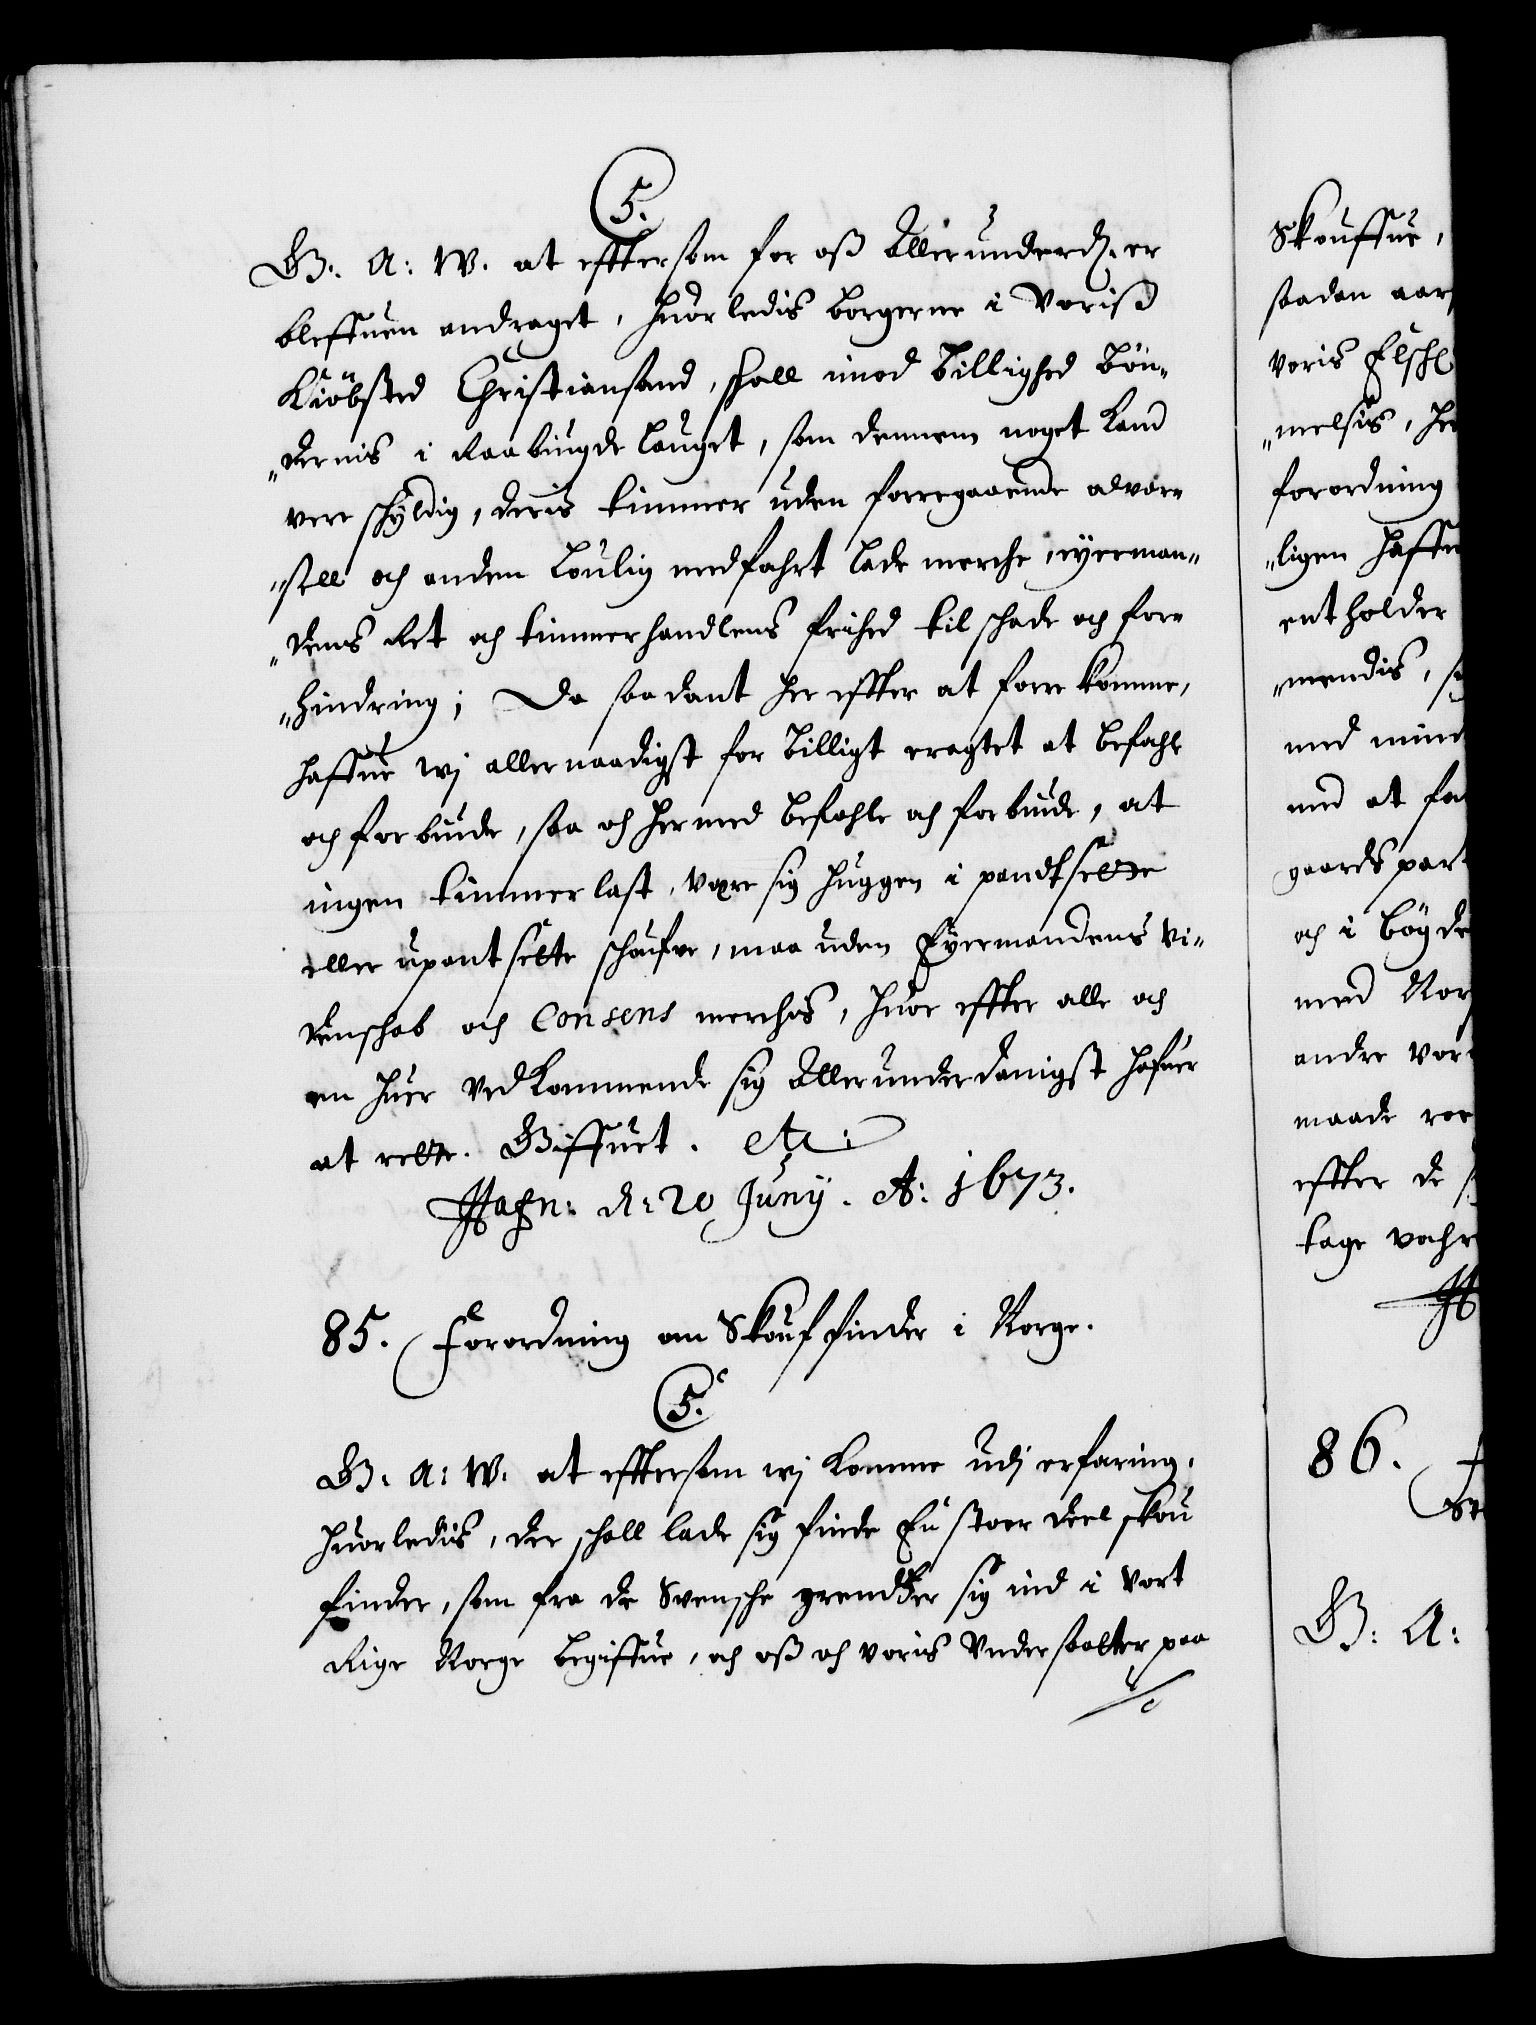 5.
G: A: W. at efftersom for oß Allerunderd: er
bleffuen andraget, huorledis borgerne i Voriß
Kiöbsted Christiansand, skall imod billighed bön„
„dernis i Raabiugde lauget, som dennem noget kand
vere schyldig, deris timmer uden forregaaende advar„
„sell och anden loulig medfahrt lade merche, eyerman„
„dens Ret och timmerhandlens frihed til schade och for„
„hindring; Da saadant her effter at forrekomme,
haffue wj allernaadigst for billigt eragtet at befahle
och forbiude, saa och hermed befahle och forbiude, at
ingen timmerlast, være sig huggen i pandtsette
eller upantsette schoufve, maa uden Eyermandens Vi„
denschab och Consens merchis, huor effter alle och
en huer vedkommende sig Allerunderdanigst hafuer
at rette. Giffuet. etc:
Hafn: d: 20 Juny. A: 1673.
85. Forordning om Skouffinder i Norge.
5.
G. A: W. at efftersom wj komme udj erfaring,
huorledis, der schall lade sig finde En stoer deel skou
finder, som fra de Svensche grendtzer sig ind i Vort
Rige Norge begiffue, och oß och voris Undersaatter paa
Skouffue,
saadan aar
voris Elskl
„melsis, he
forordning
„ligen haffu
ent holder
„mendis, s
med mind
med at fa
gaards part
och i bögde
med Nor
andre vor
maade ver
effter de s
tage vahr
H
86. F
G: A: